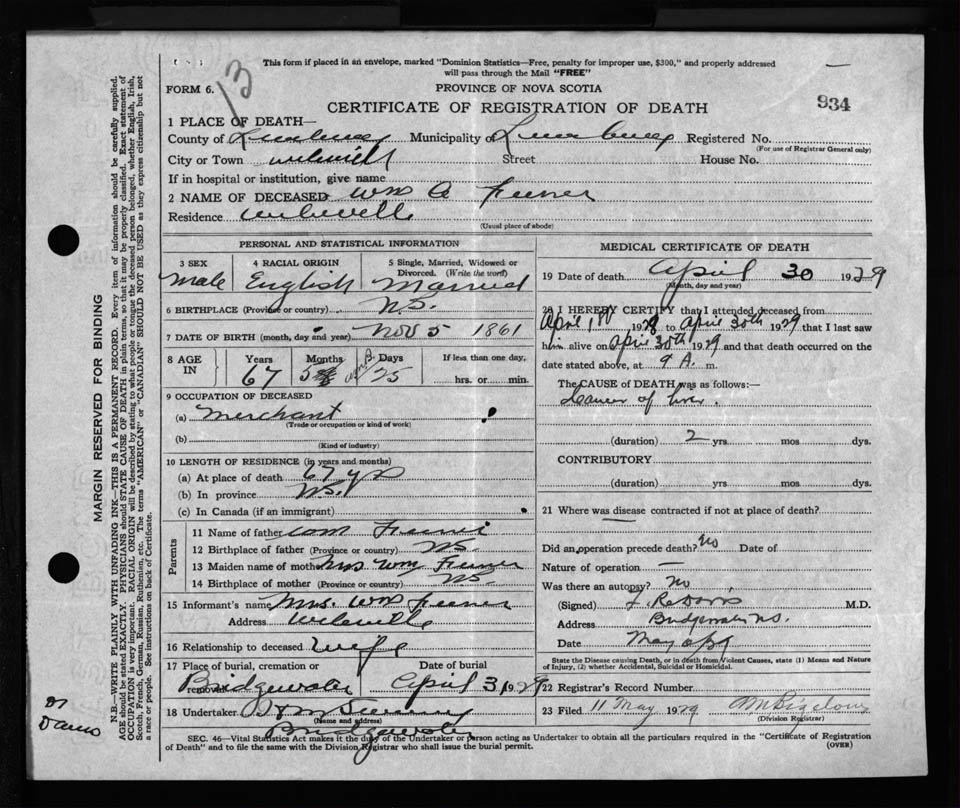 13
This form if placed in an envelope, marked "Dominion Statistics—Free, penalty for improper use, $300," and properly addressed
will pass through the Mail "FREE"
FORM 6.
PROVINCE OF NOVA SCOTIA
934
CERTIFICATE OF REGISTRATION OF DEATH
1 PLACE OF DEATH—
County of Lunenburg Municipality of Lunenburg Registered No.
(For use of Registrar General only)
City or Town Wileville Street House No.
If in hospital or institution, give name
2 NAME OF DECEASED Wm A Feener
Residence Wileville
(Usual place of abode)
PERSONAL AND STATISTICAL INFORMATION
3 SEX 4 RACIAL ORIGIN 5 Single, Married, Widowed or
Divorced. (Write the word)
Male English Married
6 BIRTHPLACE (Province or country) N.S.
7 DATE OF BIRTH (month, day and year) Nov 5 1861
8 AGE
IN
Years Months Days If less than one day,
67 5 25 hrs. or min.
9 OCCUPATION OF DECEASED
(a) Merchant
(Trade or occupation or kind of work)
(b)
(Kind of industry)
10 LENGTH OF RESIDENCE (in years and months)
(a) At place of death 67 yrs
(b) In province N.S.
(c) In Canada (if an immigrant)
Parents
11 Name of father Wm Feener
12 Birthplace of father (Province or country) NS
13 Maiden name of mother Mrs. Wm Feener
14 Birthplace of mother (Province or country) NS
15 Informant's name Mrs. Wm Feener
Address Wileville
16 Relationship to deceased Wife
17 Place of burial, cremation or
removal
Date of burial
Bridgewater April 31 1929
18 Undertaker
(Name and address)
Bridgewater
MEDICAL CERTIFICATE OF DEATH
19 Date of death April 30 1929
(Month, day and year)
20 I HEREBY CERTIFY that I attended deceased from
April 1st 1928 to April 30th 1929 that I last saw
him alive on April 30th 1929 and that death occurred on the
date stated above, at 9 A. m.
The CAUSE OF DEATH was as follows:—
Cancer of liver.
(duration) 2 yrs mos dys.
CONTRIBUTORY
(duration) yrs mos dys.
21 Where was disease contracted if not at place of death?
Did an operation precede death? No Date of
Nature of operation —
Was there an autopsy? No
(Signed) Davis M.D.
Address Bridgewater N.S.
Date May
State the Disease causing Death, or in death from Violent Causes, state (1) Means and Nature
of Injury, (2) whether Accidental, Suicidal or Homicidal.
22 Registrar's Record Number
23 Filed 11 May 1929 Bigelow
(Division Registrar)
SEC. 46—Vital Statistics Act makes it the duty of the Undertaker or person acting as Undertaker to obtain all the particulars required in the "Certificate of Registration
of Death" and to file the same with the Division Registrar who shall issue the burial permit.
(OVER)
MARGIN RESERVED FOR BINDING
N.B.—WRITE PLAINLY WITH UNFADING INK—THIS IS A PERMANENT RECORD. Every item of information should be carefully supplied.
AGE should be stated EXACTLY. PHYSICIANS should STATE CAUSE OF DEATH in plain terms, so that it may be properly classified. Exact statement of
OCCUPATION is very important. RACIAL ORIGIN will be described by stating to what people or tongue the deceased person belonged, whether English, Irish,
Scotch, French, German, Russian, Ruthenian, etc. The terms "AMERICAN" or "CANADIAN" SHOULD NOT BE USED as they express citizenship but not
a race or people. See instructions on back of Certificate.
Dr
Davis